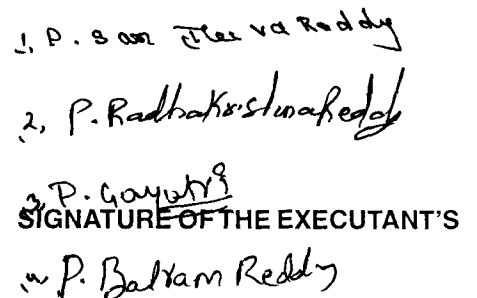 1. P. San Jeeva Reddy
2, P. RadhaKrishnaReddy
3, P. Gayatri
SIGNATURE OF THE EXECUTANT'S
P. Balram Reddy